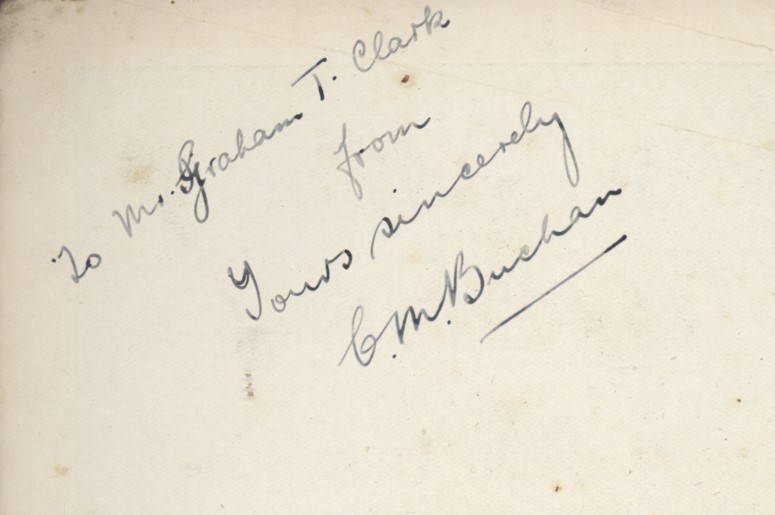 To Mr. Graham T. Clark
from
Yours sincerely
C.M. Buchan